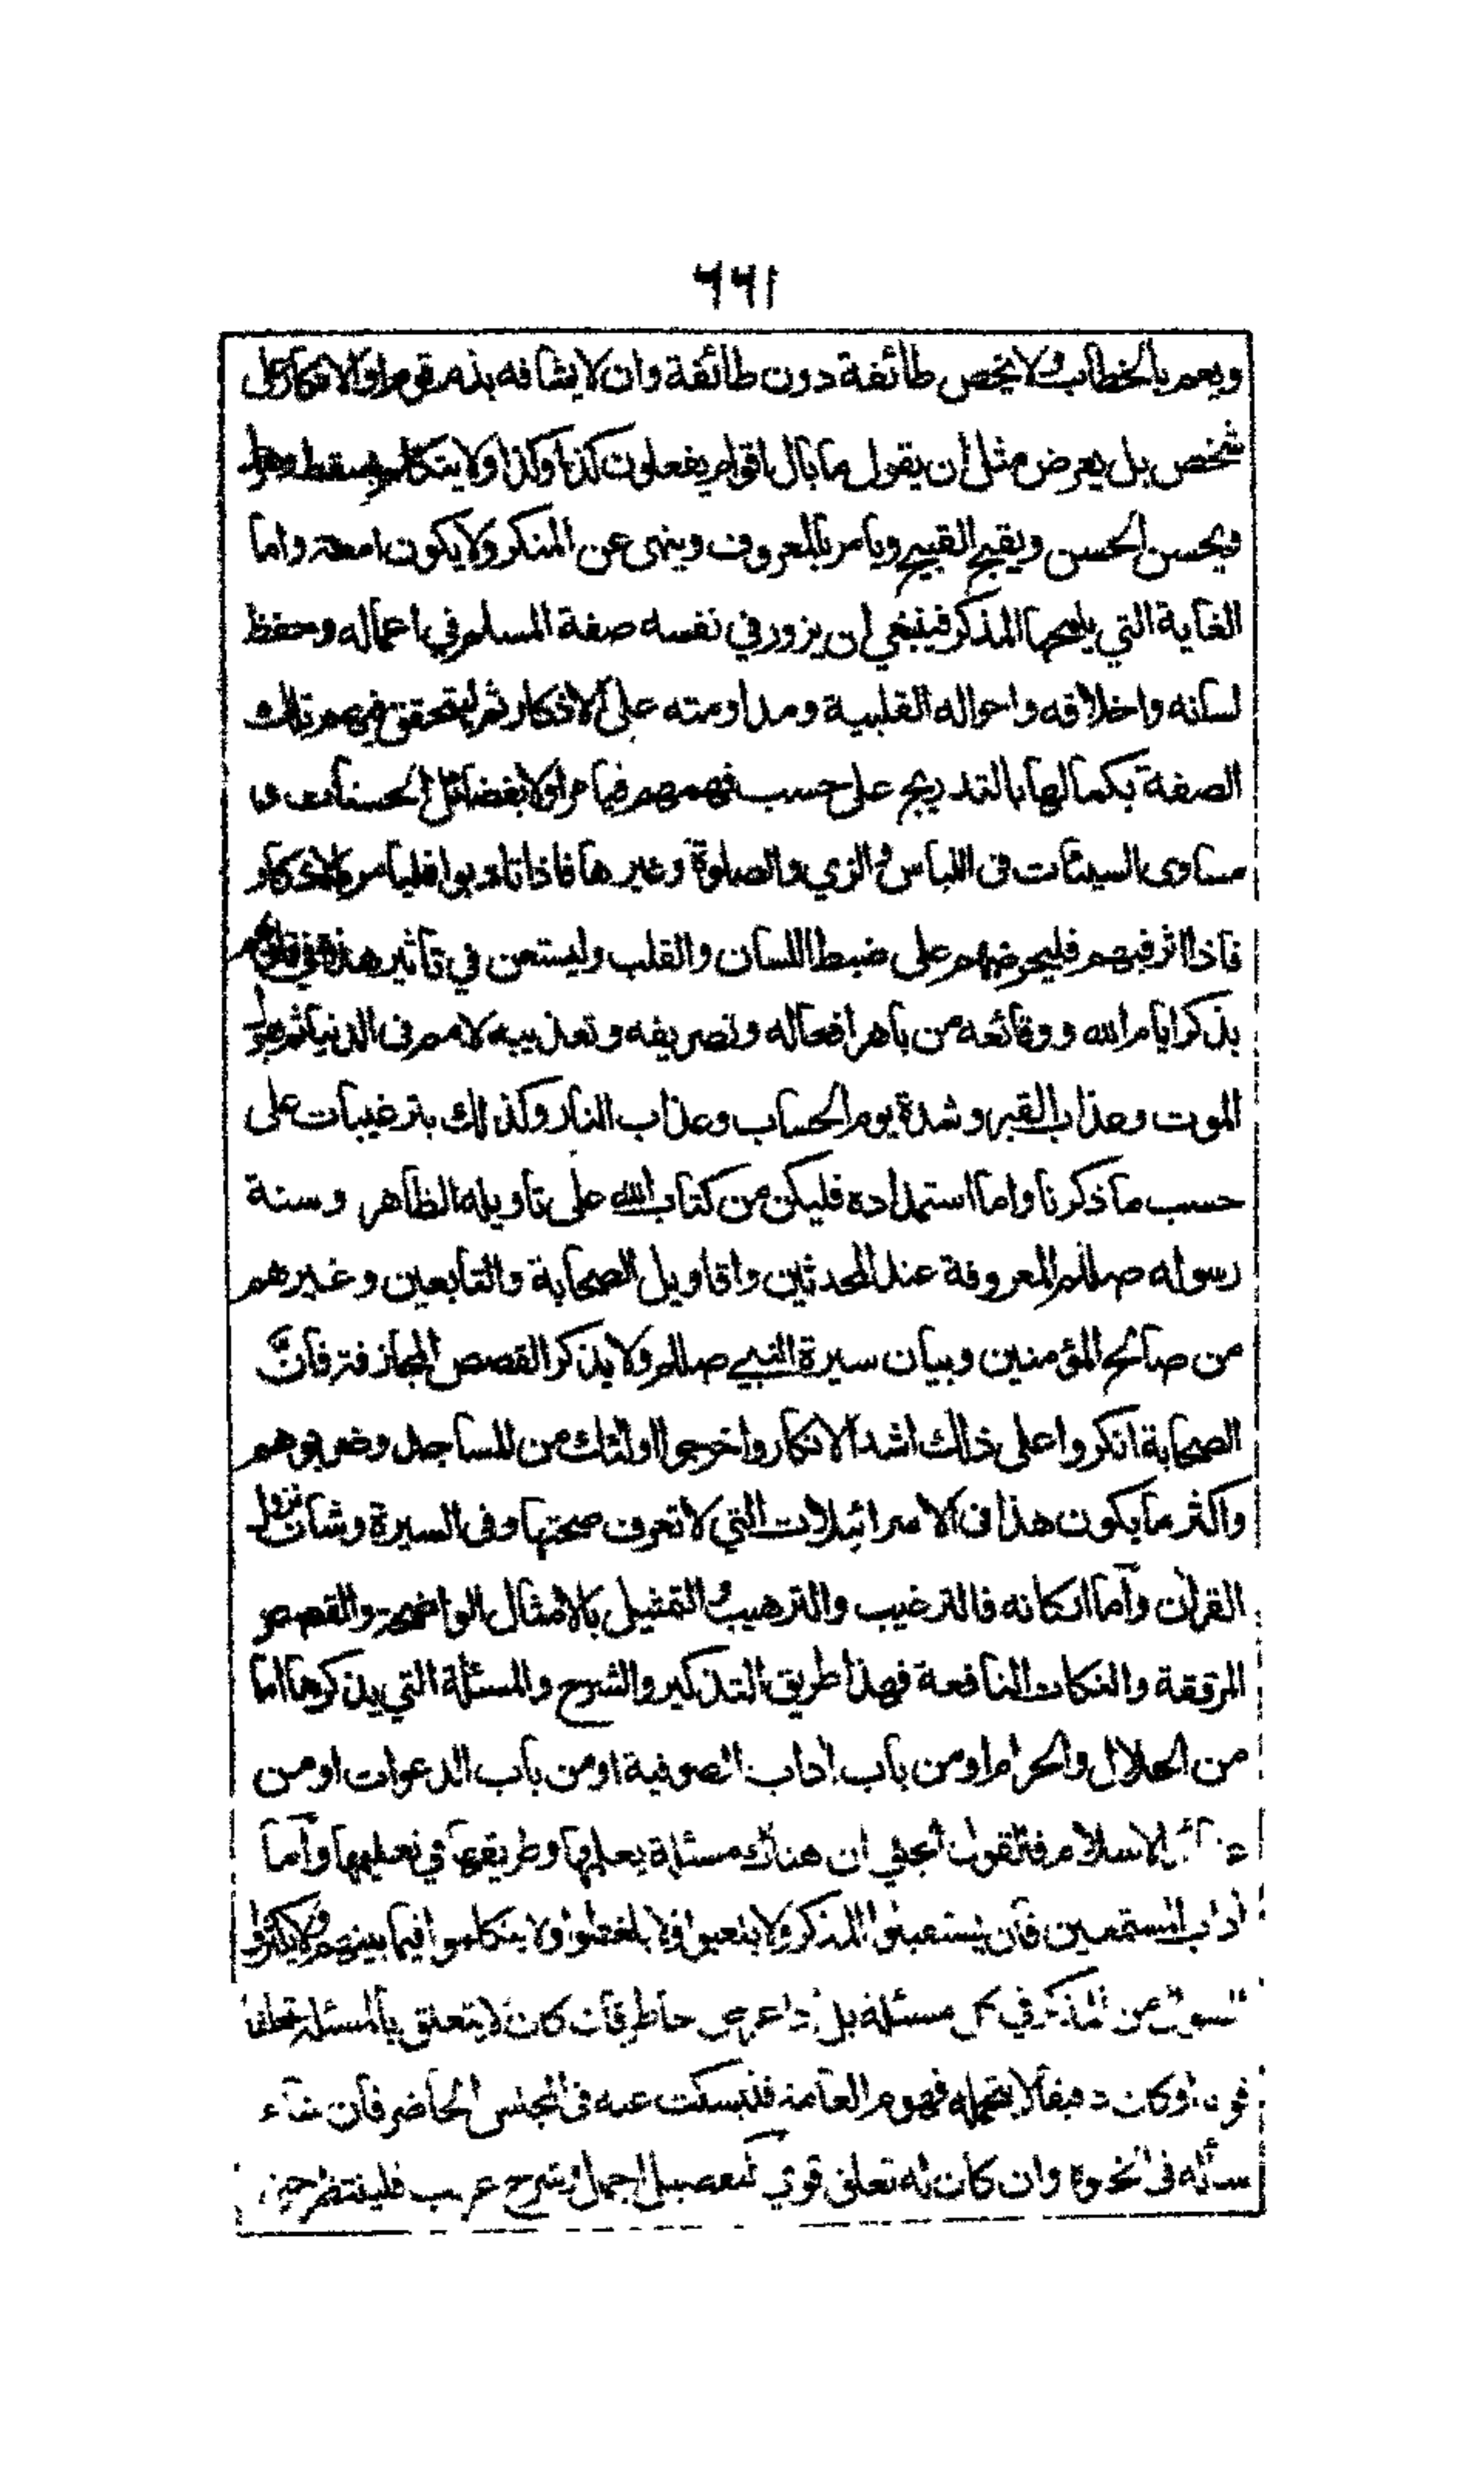 ٦٦١
ويعم بالخطاب ولا يخص طائفة دون طائفة وان لا يشافه بذم قوم او الانكار على
شخص بل يعرض مثل ان يقول ما بال اقوام يفعلون كذا وكذا ولا يتكلم بسقط وهزل
ويحسن الحسن ويقبح القبيح ويامر بالمعروف وينهى عن المنكر ولا يكون امعة واما
الغاية التي يلمحها المذكر فينبغي ان يزور في نفسه صفة المسلم في اعماله وحفظ
لسانه واخلاقه واحواله القلبية ومداومته على الاذكار ثم ليتحقق فيهم تلك
الصفة بكمالها بالتدريج على حسب فهمهم فيامر اولا بفضائل الحسنات و
مساوى السيئات فى اللباس والزي والصلوة وغيرها فاذا تادبوا فليامر بالاذكار
فاذا اثر فيهم فليحرضهم على ضبط اللسان والقلب وليستعن في تاثير هذه في قلوبهم
بذكر ايام الله ووقائعه من باهر افعاله وتصريفه وتعذيبه لامم فى الدنيا ثم بهول
الموت وعذاب القبر وشدة يوم الحساب وعذاب النار وكذلك بترغيبات على
حسب ما ذكرنا واما استمداده فليكن من كتاب الله على تاويله الظاهر وسنة
رسوله صللم المعروفة عند المحدثين واقاويل الصحابة والتابعين وغيرهم
من صالح المؤمنين وبيان سيرة النبي صللم ولا يذكر القصص المجازفة فان
الصحابة انكروا على ذلك اشد الانكار واخرجوا اولئك من المساجد وضربوهم
واكثر ما يكون هذا فى الاسرائيلات التي لا تعرف صحتها وفى السيرة وشان نزول
القران وآما اركانه فالترغيب والترهيب والتمثيل بالامثال الواضحة والقصص
المرققة والنكات النافعة فهذا طريق التذكير والشرح والمسئلة التي يذكرها اما
من الحلال والحرام او من باب اداب الصوفية او من باب الدعوات او من
الاسلام فالقول ان هناك مسئلة يعلمها وطريقها في تعليمها وآما
اداب المستمعين فان يستقبلوا المذكر ولا يلعبوا ولا يلغطوا ولا يتكلموا فيما بينهم ولا يكثروا
السوال عن المذكر في كل مسئلة بل اذا عرض خاطر فان كان لا يتعلق بالمسئلة تعلقا
قويا او كان دقيقا لا يتحمله فهوم العامة فليسكت عنه فى المجلس الحاضر فان شاء
سأله فى الخلوة وان كان له تعلق قوي كتفصيل اجمال وشرح غريب فلينتظر حتى